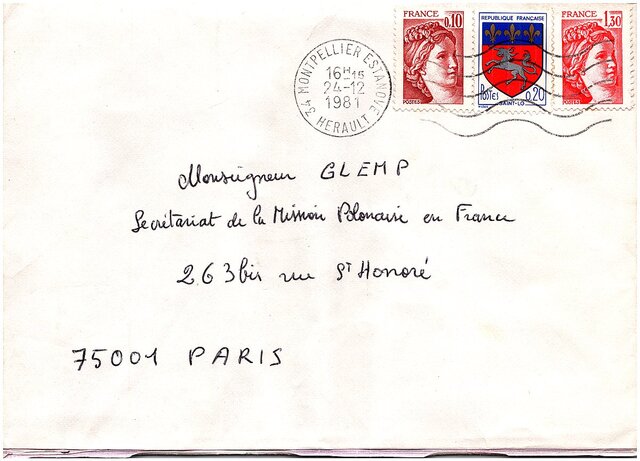 FRANCE 0,10
POSTES
REPUBLIQUE FRANÇAISE
POSTES 0,20
SAINT-LO
FRANCE 1,30
POSTES
34 MONTPELLIER ESTANOVE
16H15
24-12
1981
HERAULT
Monseigneur GLEMP
Secrétariat de la Mission Polonaise en France
263bis rue St Honoré
75001 PARIS